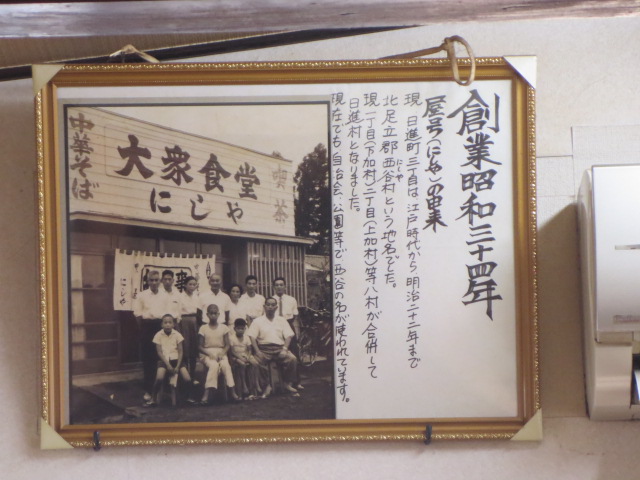 創業昭和三十四年
屋号(にしや)の由来
現 日進町三丁目は江戸時代から明治二十二年まで
北足立郡西谷村という地名でした。
にしや
現一丁目(下加村)二丁目(上加村)等八村が合併して
日進村となりました。
現在でも自治会、公園等で西谷の名が使われています。
中華そば
大衆食堂
にしや
喫茶
にしや